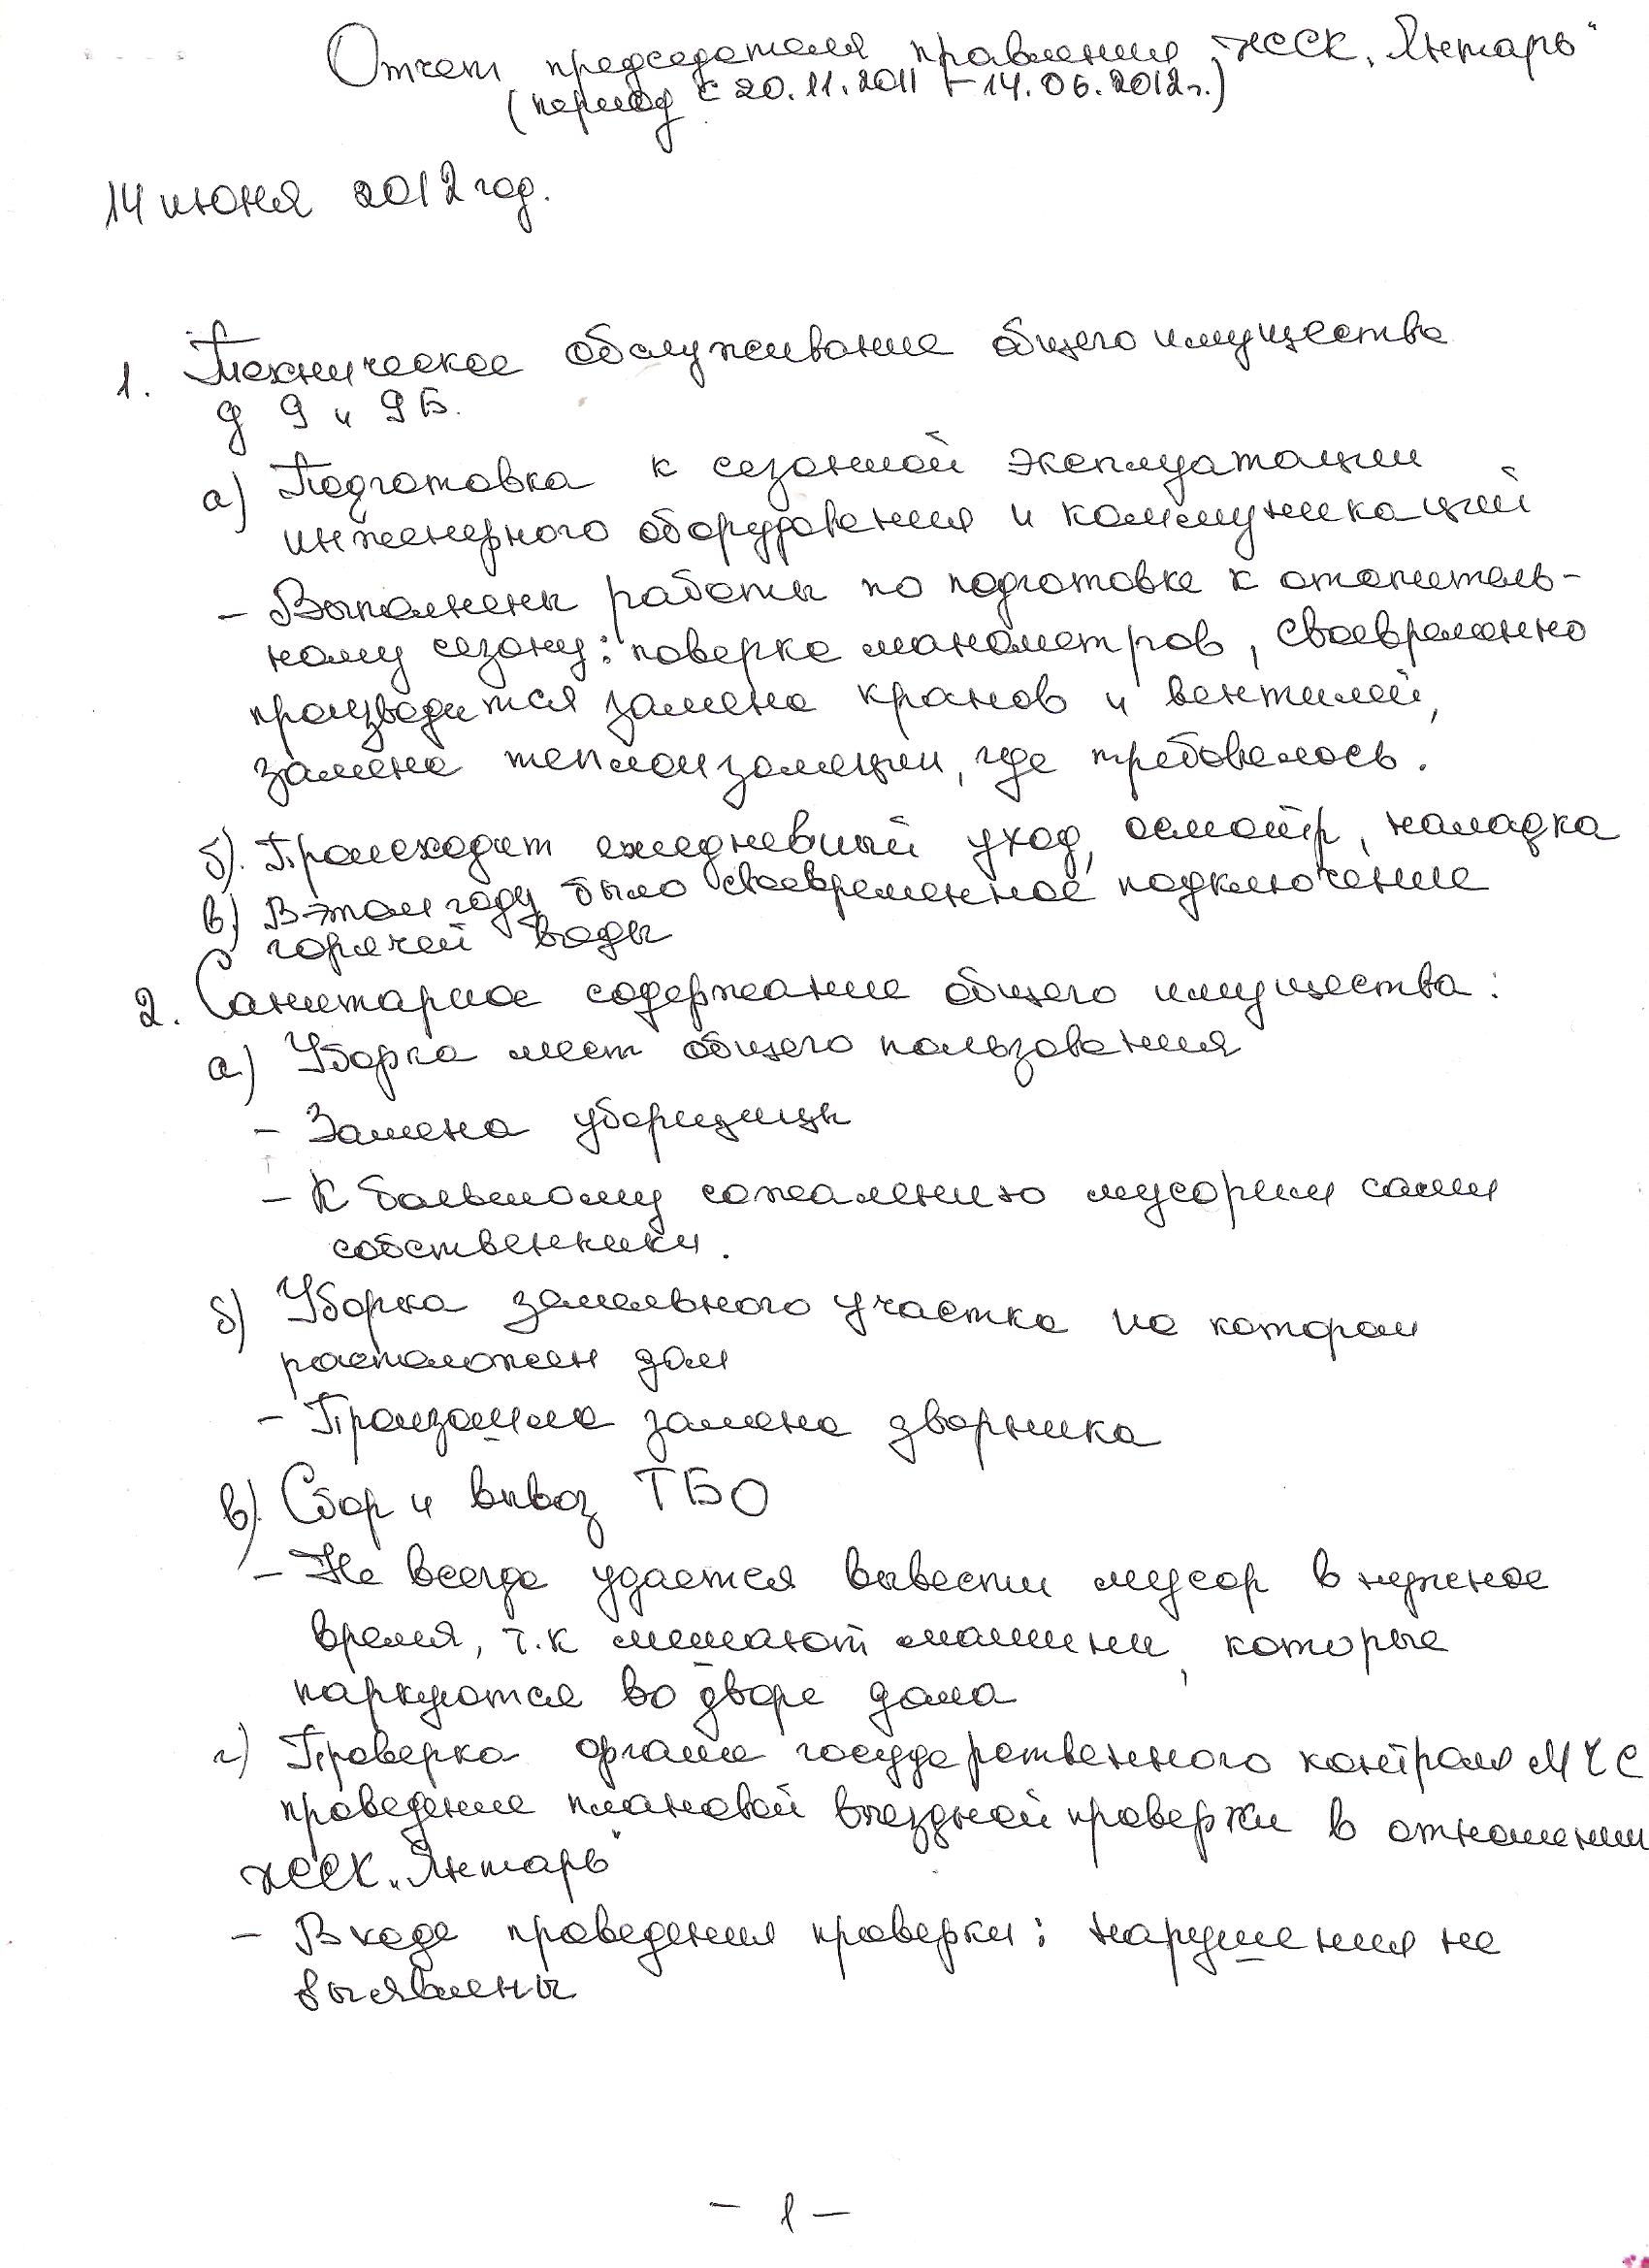 Отчет председателя правления ЖССК „Янтарь"
(период с 20.11.2011 – 14.06.2012г.)
14 июня 2012 год.
1. Техническое обслуживание общего имущества
д 9 и 9Б.
а) Подготовка к сезонной эксплуатации
инженерного оборудования и коммуникаций
– Выполнены работы по подготовке к отопитель-
ному сезону: поверка манометров, своевременно
производится замена кранов и вентилей,
замена теплоизоляции, где требовалось.
б). Происходит ежедневный уход, осмотр, наладка
в) В этом году было своевременное подключение
горячей воды
2. Санитарное содержание общего имущества:
а) Уборка мест общего пользования
– Замена уборщицы
– К большому сожалению мусорим сами
собственники.
б) Уборка земельного участка на котором
расположен дом
– Произошла замена дворника
в). Сбор и вывоз ТБО
– Не всегда удается вывести мусор в нужное
время, т.к мешают машины, которые
паркуются во дворе дома
г) Проверка органа государственного контроля МЧС
проведение плановой выездной проверки в отношении
ЖССК „Янтарь"
– В ходе проведения проверки: нарушения не
выявлены
– 1 –